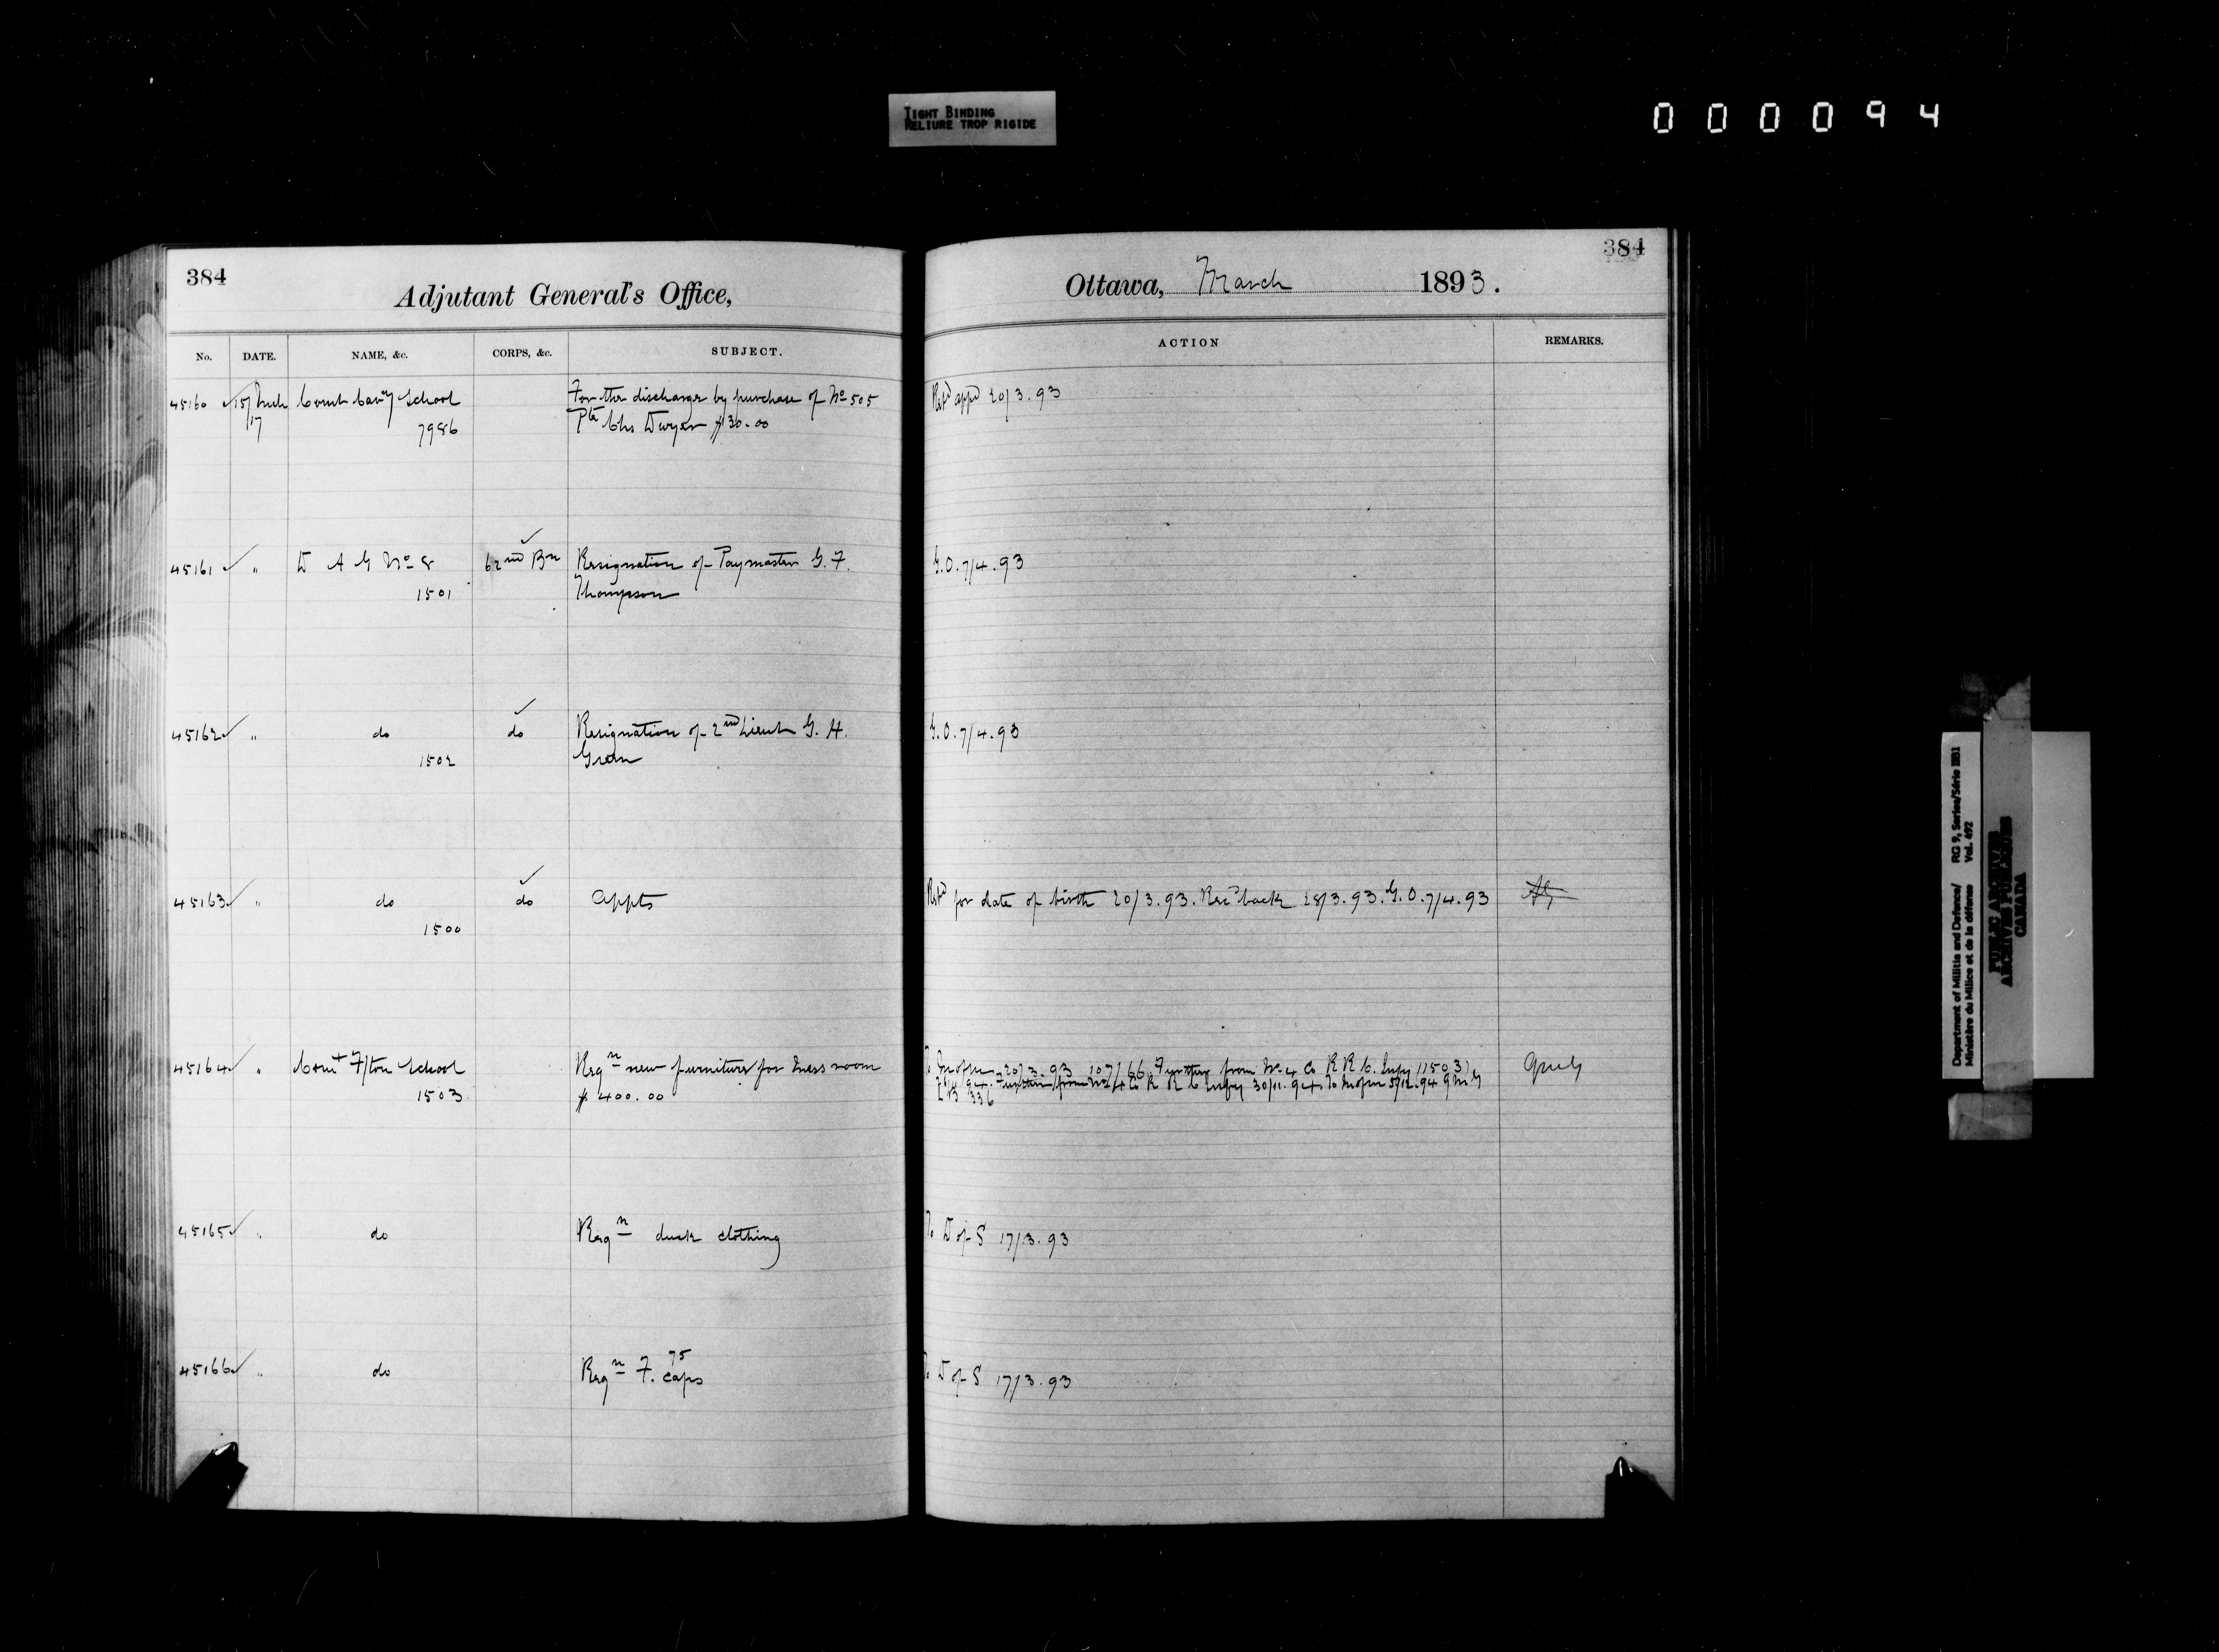 TIGHT BINDING
RELIURE TROP RIGIDE
000094
384
Adjutant General's Office,
Ottawa, March 1893.
384
No. DATE. NAME, &c. CORPS, &c. SUBJECT.
ACTION REMARKS.
45160 15/ Mch Comt Cavy School For the discharge by purchase of No 505 Retd appd 20/3.93
17 7986 Pte Chs Dwyer $30.00
45161 " D A G No 8 62nd Bn Resignation of Paymaster G. F. G.O. 7/4.93
1501 Thompson
45162 " do do Resignation of 2nd Lieut G. H. G.O. 7/4.93
1502 Green
45163 " do do Appts Retd for date of birth 20/3.93. Recd back 28/3.93. G.O. 7/4.93
1500
45164 " Comt F/ton School Reqn new furniture for Mess room 20/3.93 107166. Further from No 4 Co R R C. Infy 11503
1503 $400.00 94. Further from No 4 Co R R C Infy 30/11.94. To 5/12.94
336
45165 " do Reqn duck clothing To D of S 17/3.93
45166 " do Reqn F. 75 caps To D of S 17/3.93
Department of Militia and Defence/ RG 9, Series/Série IIB1
Ministère du Milice et de la défense Vol. 492
PUBLIC ARCHIVES
ARCHIVES PUBLIQUES
CANADA